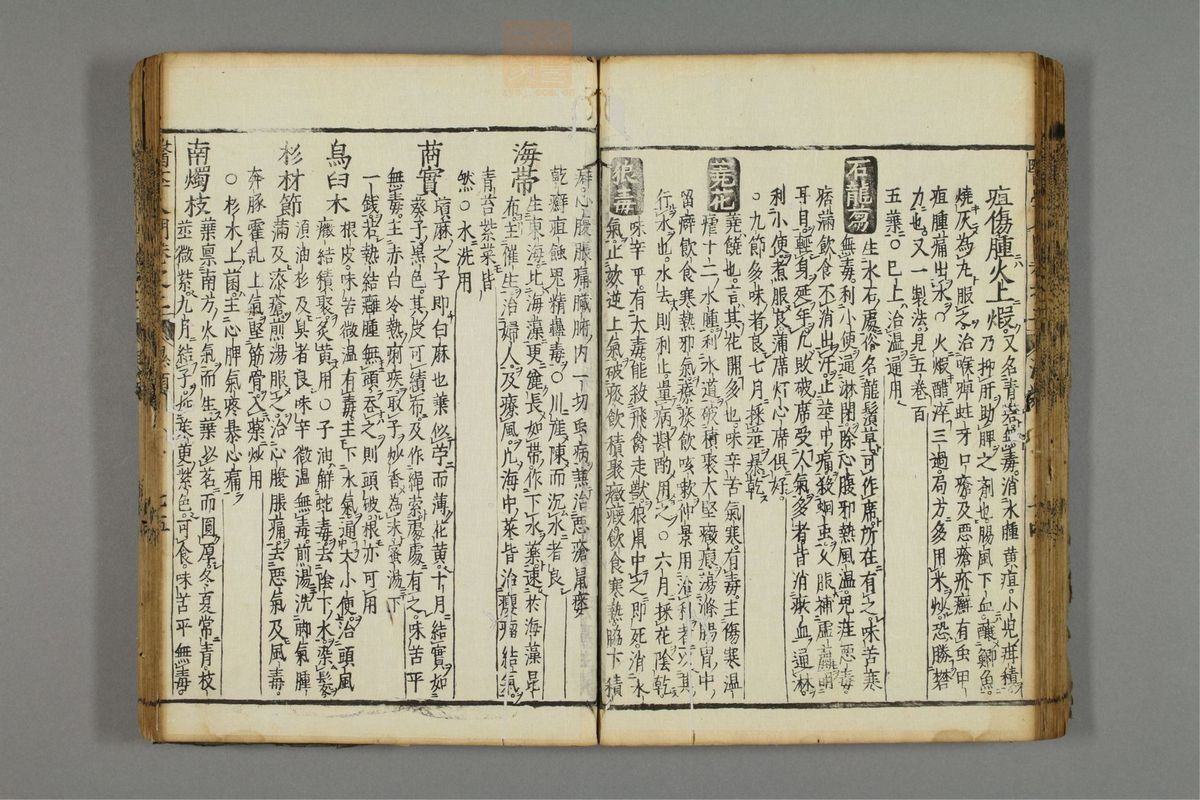 疽傷腫火上煆又名青蒙無毒消水腫黃疸小兒疳積
乃抑肝助脾之劑也腸風下血釀鯽魚
燒灰為丸服之治喉痺蛀牙口瘡及惡瘡疥癬有虫甲
疽腫痛出水○火煅醋淬三過局方多用米炒恐勝礬
力也又一製法見五卷百
五藥○已上治溫通用
石龍芻
生水石處俗名龍鬚草可作席所在有之味苦寒
無毒利小便通淋閉除心腹邪熱風濕鬼疰惡毒
痞滿飲食不消出汗止莖中痛殺蛔虫又脹補虛聰明
耳目輕身延年凡敗破席受人氣多者皆消瘀血通淋
利小便煮服良蒲席灯心席俱好
○九節多味者良七月採莖暴乾
蕘花
蕘饒也言其花開多也味辛苦氣寒有毒主傷寒溫
瘧十二水腫利水道破積聚大堅癥瘕蕩滌腸胃中
留癖飲食寒熱邪氣療痰飲咳嗽仲景用治利者以其
行水也水去則利止量病斟酌用之○六月採花陰乾
狼毒
味辛平有大毒能殺飛禽走獸狼鼠中之即死消水
氣止欬逆上氣破痰飲積聚癥瘕飲食寒熱脇下積
癖心腹脹痛臟腑內一切虫病兼治惡瘡鼠瘻
乾癬疽蝕鬼精蠱毒○川產陳而沉水者良
海帶
生東海比海藻更麄長如帶作下水藥速於海藻昆
布主催生治婦人及療風凡海中菜皆治癭瘤結氣
青苔紫菜皆
然○水洗用
䔛實
䔛麻之子即白麻也葉似苧而薄花黃十月結實如
葵子黑色其皮可績布及作繩索處處有之味苦平
無毒主赤白冷熱痢疾取子炒香為末蜜湯下
一錢若熱結癰腫無頭吞之則頭破根亦可用
烏臼木
根皮味苦微溫有毒主下水氣通大小便治頭風
癥結積聚炙黃用○子油解蛇毒去陰下水染髮
杉材節
須油杉及臭者良味辛微溫無毒煎湯洗脚氣腫
滿及漆瘡煎湯服之治心腹脹痛去惡氣及風毒
奔豚霍亂上氣堅筋骨入藥炒用
○杉木上菌主心脾氣疼暴心痛
南燭枝
葉稟南方火氣而生葉必茗而圓厚冬夏常青枝
莖微紫九月結子紫色可食味苦平無毒